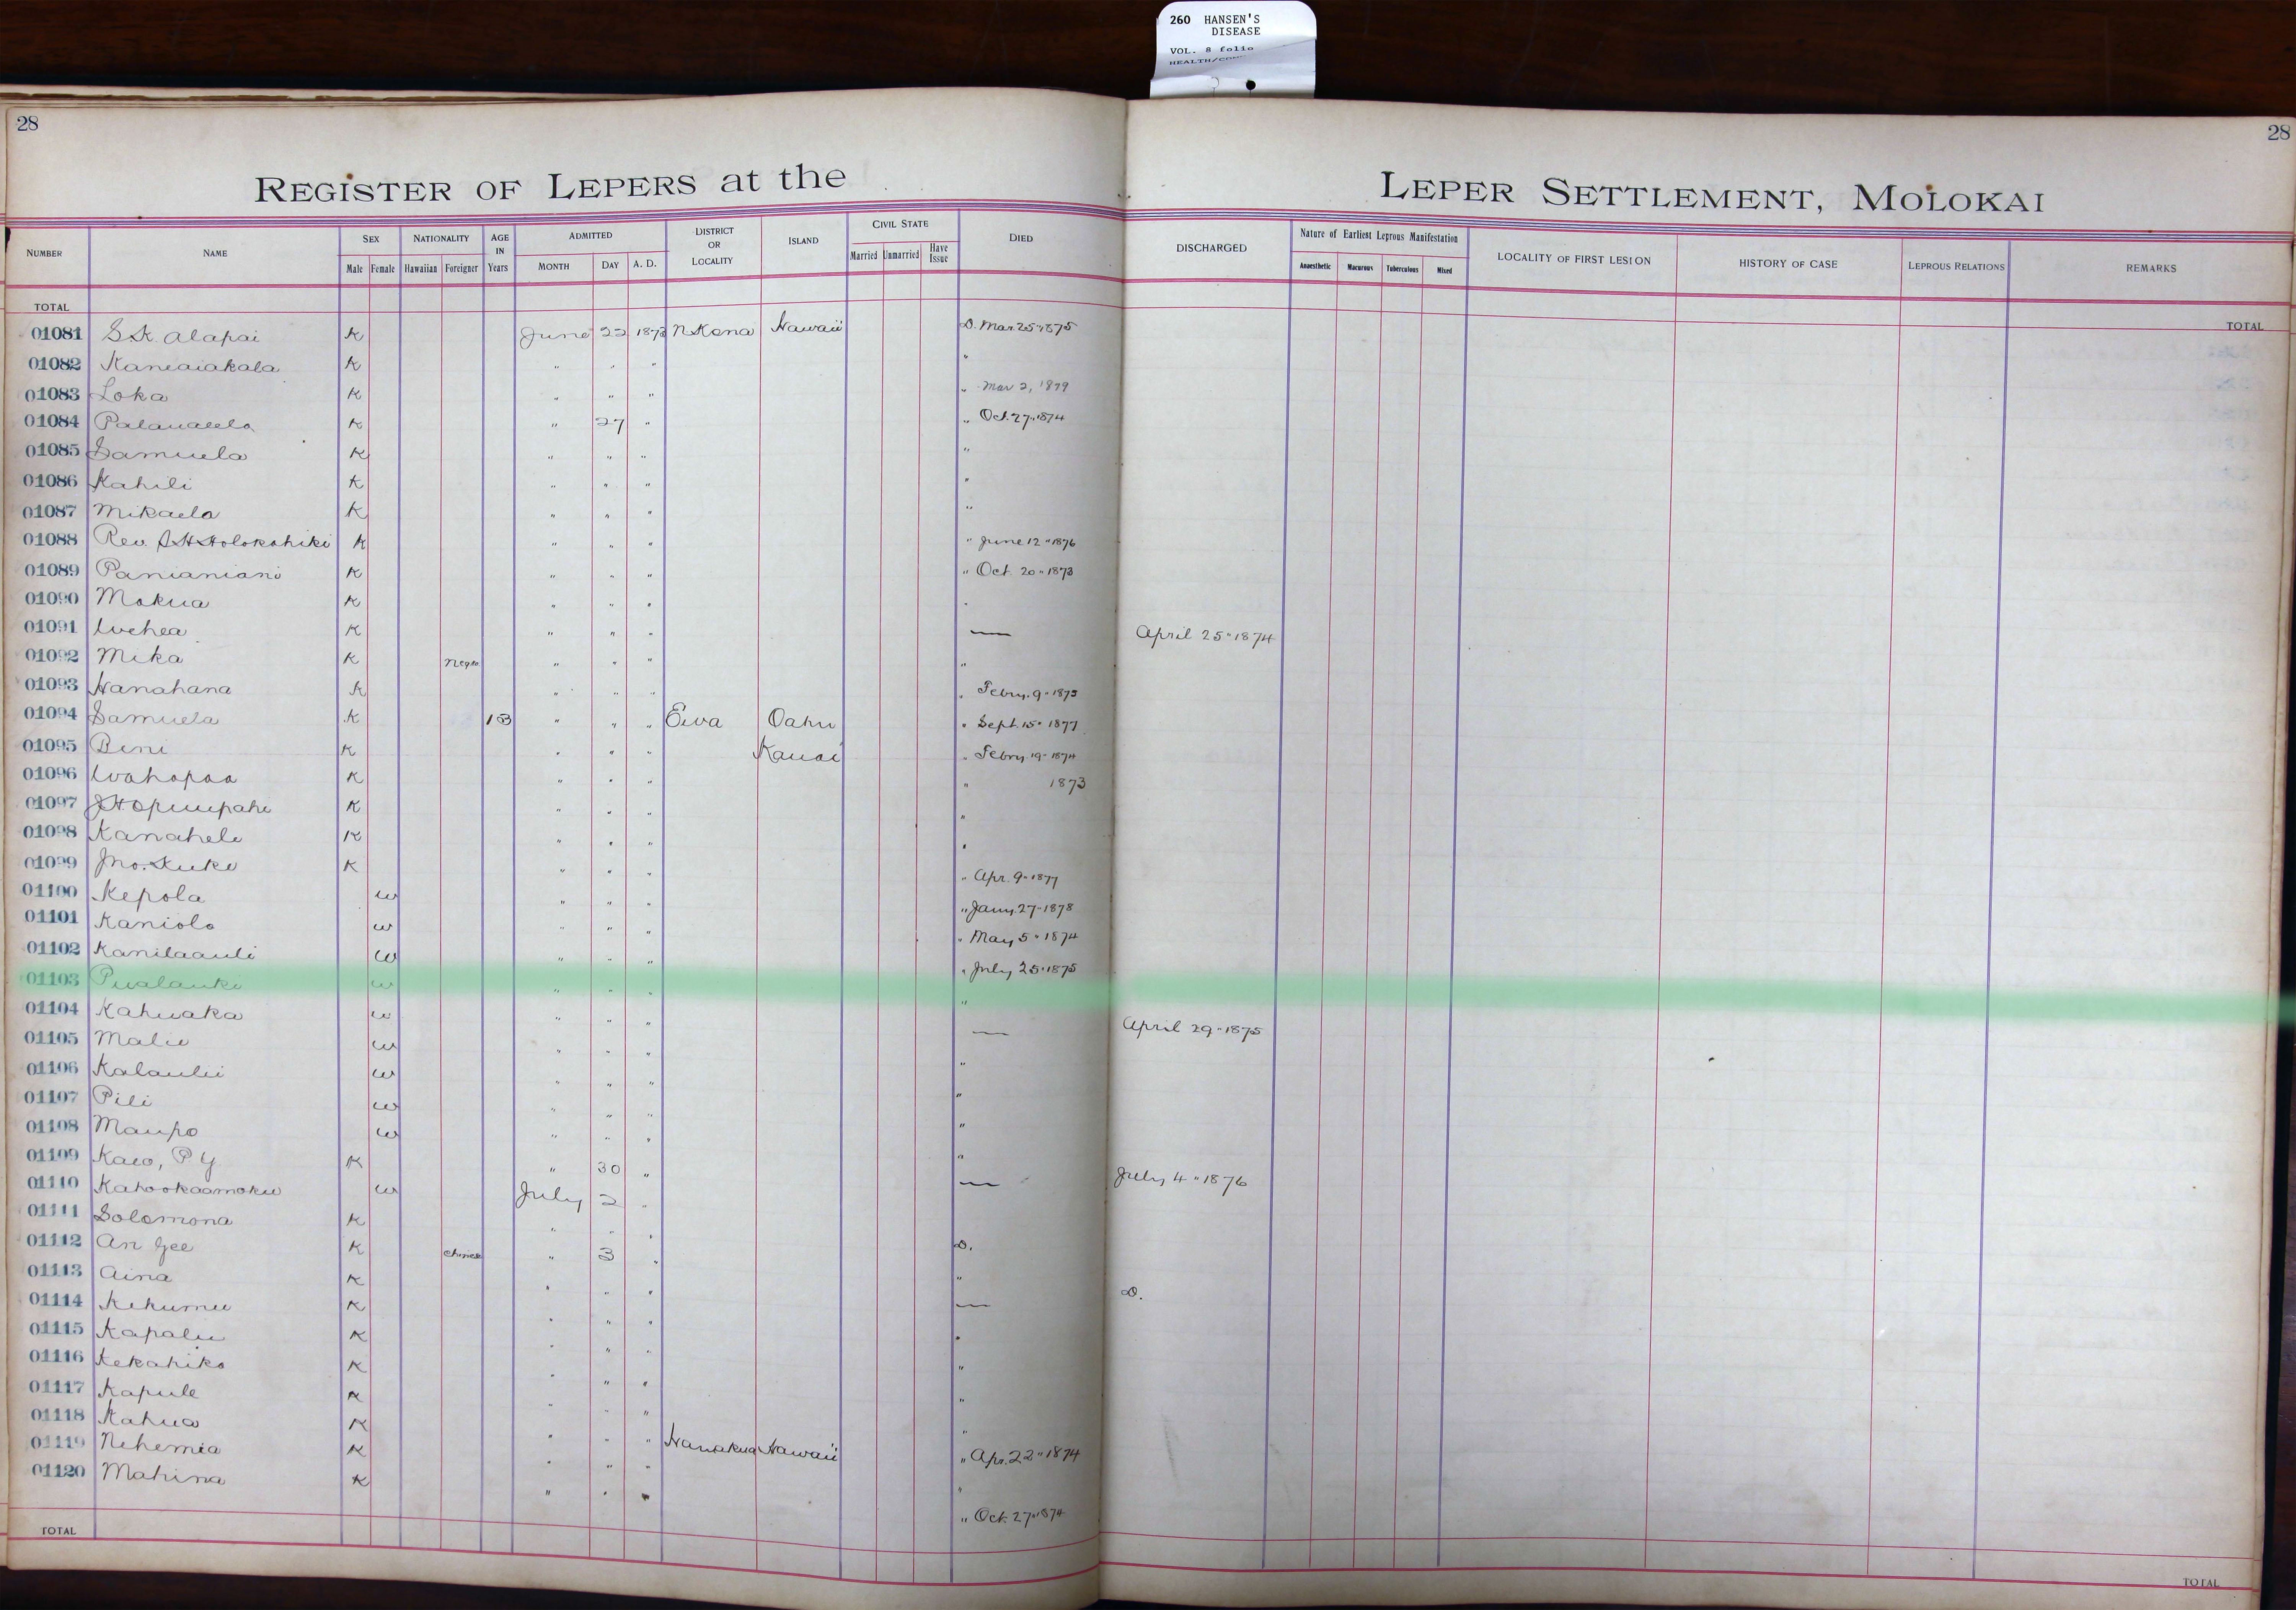 260 HANSEN'S
DISEASE
VOL. 8 folio
28
28
REGISTER OF LEPERS at the LEPER SETTLEMENT, MOLOKAI
NUMBER NAME SEX NATIONALITY AGE IN Years ADMITTED DISTRICT OR LOCALITY ISLAND CIVIL STATE DIED DISCHARGED Nature of Earliest Leprous Manifestation LOCALITY OF FIRST LESION HISTORY OF CASE LEPROUS RELATIONS REMARKS
Male Female Hawaiian Foreigner MONTH DAY A. D. Married Unmarried Have Issue Anaesthetic Macurous Tuberculous Mixed
TOTAL TOTAL
01081 S.K. Alapai K June 22 1873 N Kona Hawaii D. Mar. 25 " 1875
01082 Kaneaiakala K " " " "
01083 Loka K " " " " Mar 2, 1879
01084 K " 27 " " Oct. 27 " 1874
01085 Samuela K " " " "
01086 Kahili K " " " "
01087 Mikaela K " " " "
01088 Rev. S H Holokahiki K " " " " June 12 " 1876
01089 Panianiani K " " " " Oct. 20 " 1873
01090 Mokua K " " " "
01091 Uuehea K " " " — April 25 " 1874
01092 Mika K Negro " " " "
01093 Hanahana K " " " " Febry. 9 "
01094 Samuela K 13 " " " Ewa Oahu " Sept. 15 " 1877
01095 Beni K " " " Kauai " Febry 19 " 1874
01096 Wahapaa K " " " " 1873
01097 K " " " "
01098 Kanahele K " " " "
01099 Jno. Kuke K " " " " Apr. 9 " 1877
01100 Kepola W " " " " Jany. 27 " 1878
01101 Kaniolo W " " " " May 5 " 1874
01102 Kanilaauli W " " " " July 25 " 1875
01103 Pualauki W " " " "
01104 Kahuaka W " " " — April 29 " 1875
01105 Malie W " " " "
01106 Kalaulii W " " " "
01107 Pili W " " " "
01108 Maupo W " " " "
01109 Kaeo, P Y K " 30 " — July 4 " 1876
01110 Kahookaamoku W July 2 "
01111 Solomona K " " " D.
01112 An Gee K Chinese " 3 " "
01113 Aina K " " " — D.
01114 Kekumu K " " " "
01115 Kapalu K " " " "
01116 Kekahiko K " " " "
01117 Kapule K " " " "
01118 Kahua K " " " Hamakua Hawaii " Apr. 22 " 1874
01119 Nehemia K " " " "
01120 Mahina K " " " " Oct. 27 " 1874
TOTAL TOTAL